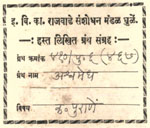 इ. वि. का. राजवाडे संशोधन मंडळ धुळें.
हस्त लिखित ग्रंथ संग्रह
ग्रंथ क्रमांक
ग्रंथ नाम अश्वमेध
विषय म० पुराणें